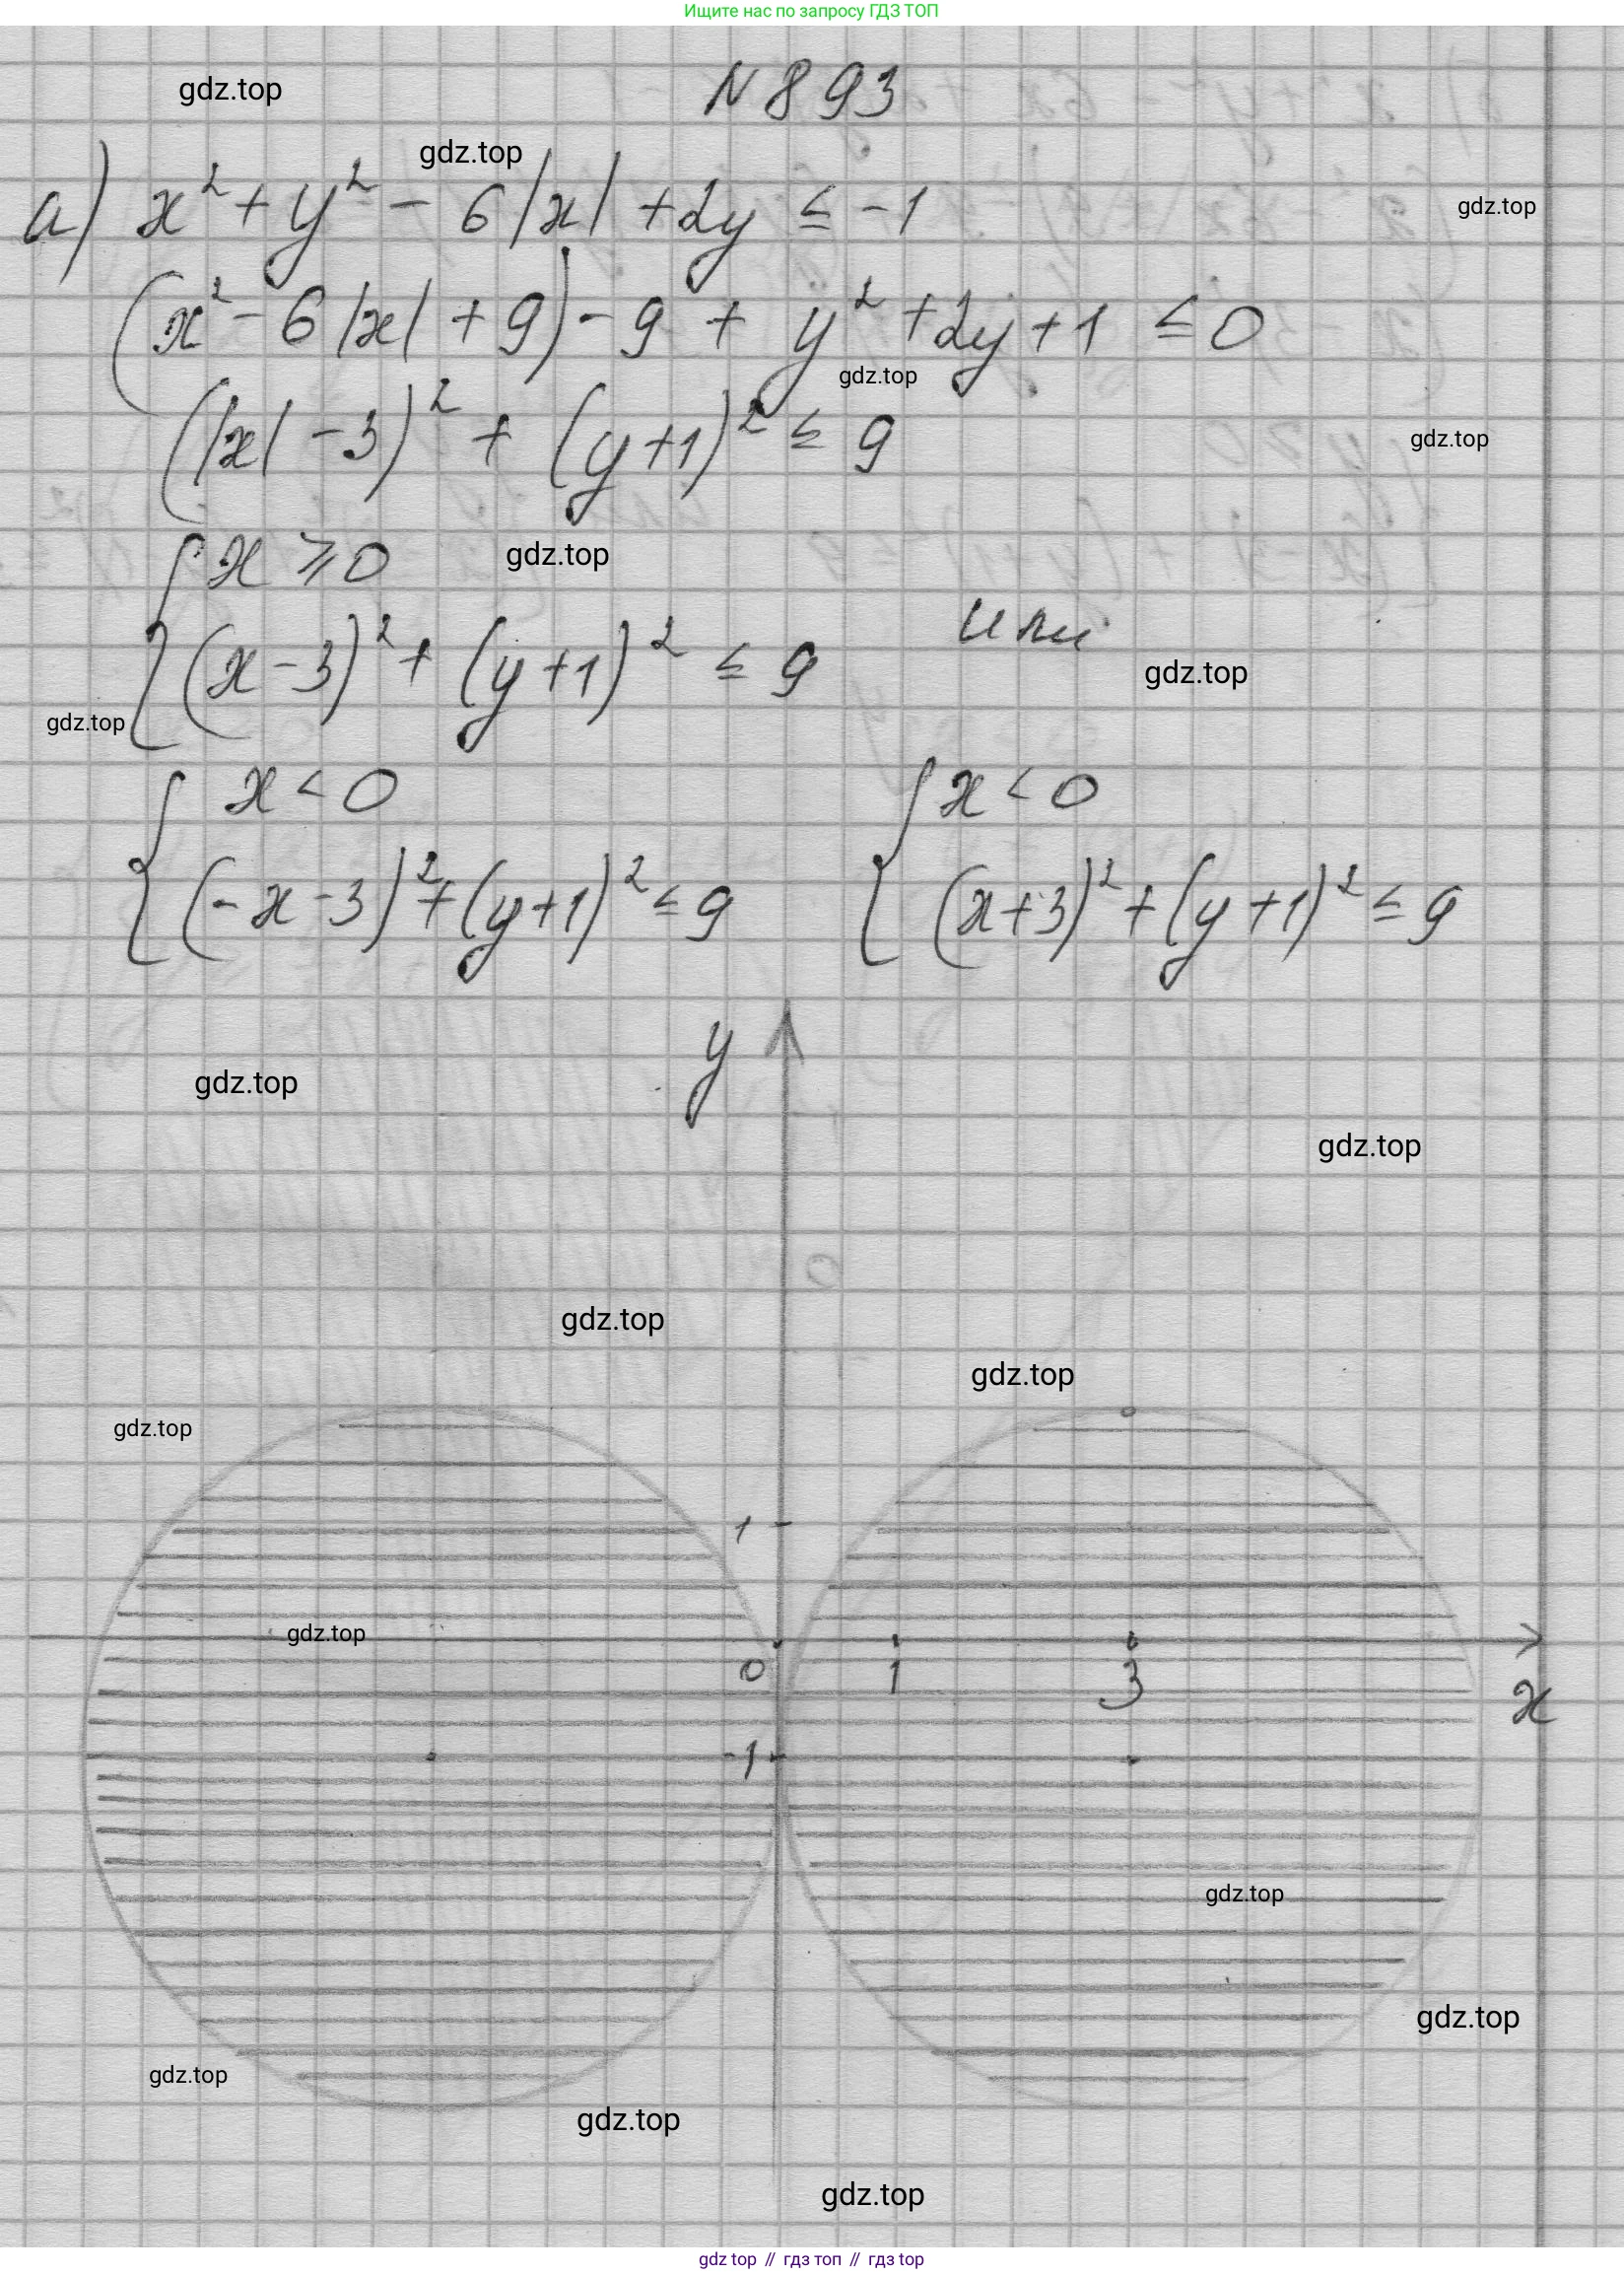 Ищите нас по запросу ГДЗ ТОП
N 893
gdz.top
gdz.top
а) x² + y² - 6|x| + 2y ≤ -1
gdz.top
(x² - 6|x| + 9) - 9 + y² + 2y + 1 ≤ 0
gdz.top
(|x| - 3)² + (y+1)² ≤ 9
gdz.top
{ x ⩾ 0
gdz.top
(x - 3)² + (y + 1)² ≤ 9 или
gdz.top
gdz.top
{ x < 0 { x < 0
(-x - 3)² + (y+1)² ≤ 9 (x+3)² + (y+1)² ≤ 9
y
gdz.top
gdz.top
gdz.top
gdz.top
gdz.top
1
gdz.top
0 1 3
x
-1
gdz.top
gdz.top
gdz.top
gdz.top
gdz.top
gdz top // гдз топ // гдз top